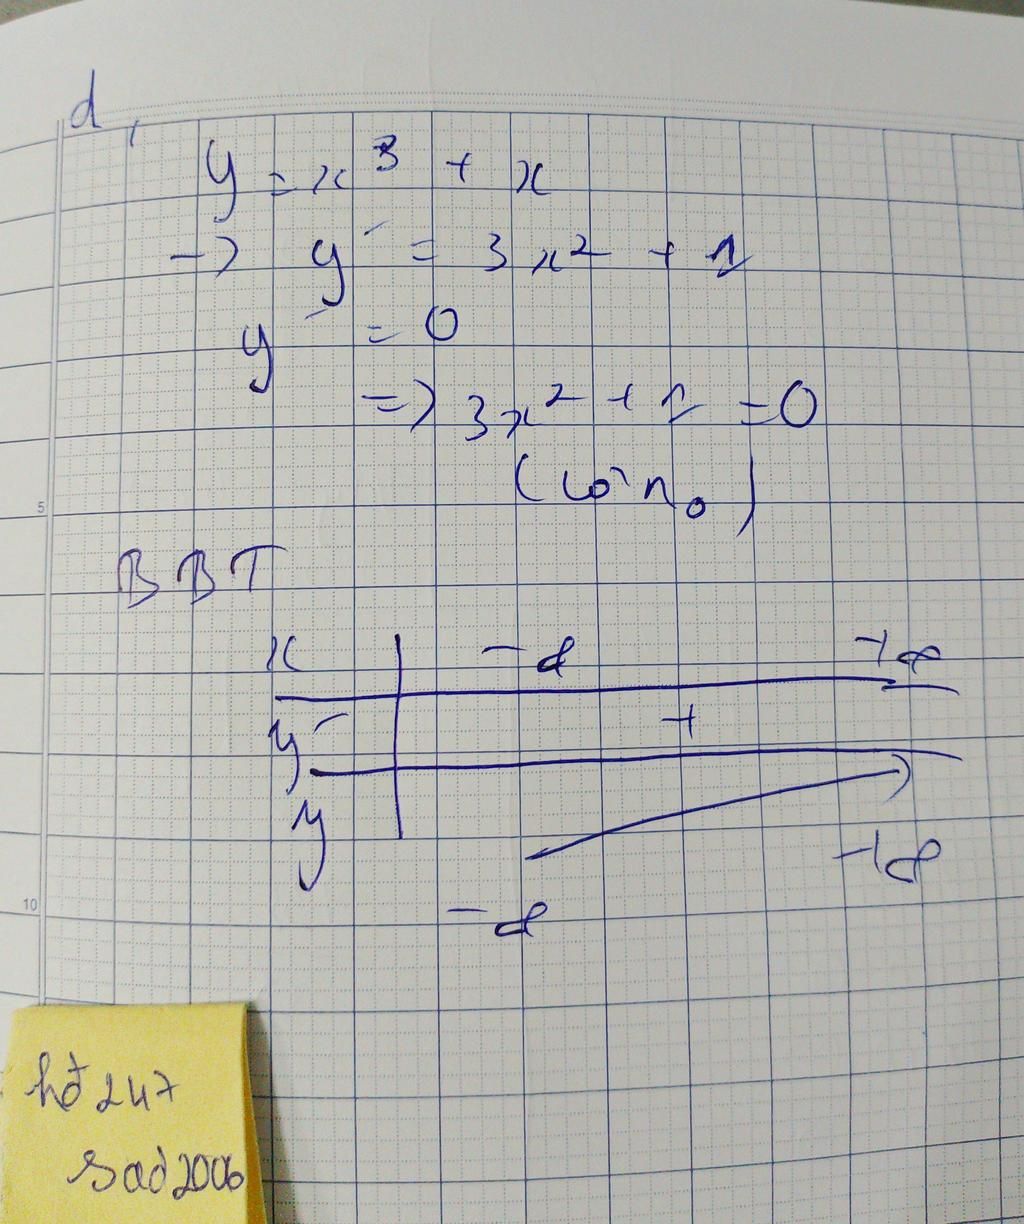 d,
y = x³ + x
→ y' = 3x² + 1
y' = 0
=> 3x² + 1 = 0
(Vô n₀)
BBT
x -∞ +∞
y' +
y +∞
-∞
hđ 247
sad2006